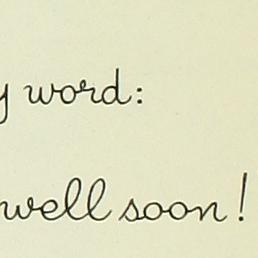 y word:
well soon!